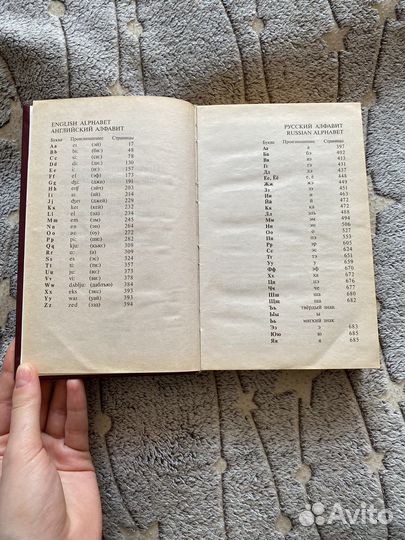 ENGLISH ALPHABET
АНГЛИЙСКИЙ АЛФАВИТ
Буквы Произношение Страницы
Aa eı (эй) 17
Bb bi: (би:) 48
Cc si: (си:) 78
Dd di: (ди:) 130
Ee i: (и:) 157
Ff ef (эф) 177
Gg (джи)
Hh (эйч)
Ii aı (ай) 214
Jj (джей) 229
Kk keı (кей)
Ll el (эл) 234
Mm em (эм) 245
Nn en (эн)
Oo (оу)
Pp pi: (пи:) 276
Qq kju:
Rr
Ss es (эс)
Tt ti:
Uu ju:
Vv vi:
Ww (даблью)
Xx eks (экс) 393
Yy waı (уай) 393
Zz zed (зэд) 394
РУССКИЙ АЛФАВИТ
RUSSIAN ALPHABET
Буквы Произношение Страницы
Аа а 397
Бб бэ 402
Вв вэ 413
Гг гэ 431
Дд дэ 437
Ее, Ёё е, ё 448
Жж жэ 449
Зз зэ 451
Ии и 463
Йй й
Кк ка 472
Лл эль 488
Мм эм 494
Нн эн 506
Оо о 527
Пп пэ 553
Рр эр 605
Сс эс 624
Тт тэ 651
Уу у 659
Фф эф 670
Хх ха 672
Цц цэ 675
Чч че 677
Шш ша 680
Щщ ща 682
Ъъ твёрдый знак
Ыы ы
Ьь мягкий знак
Ээ э 683
Юю ю 685
Яя я 685
Avito